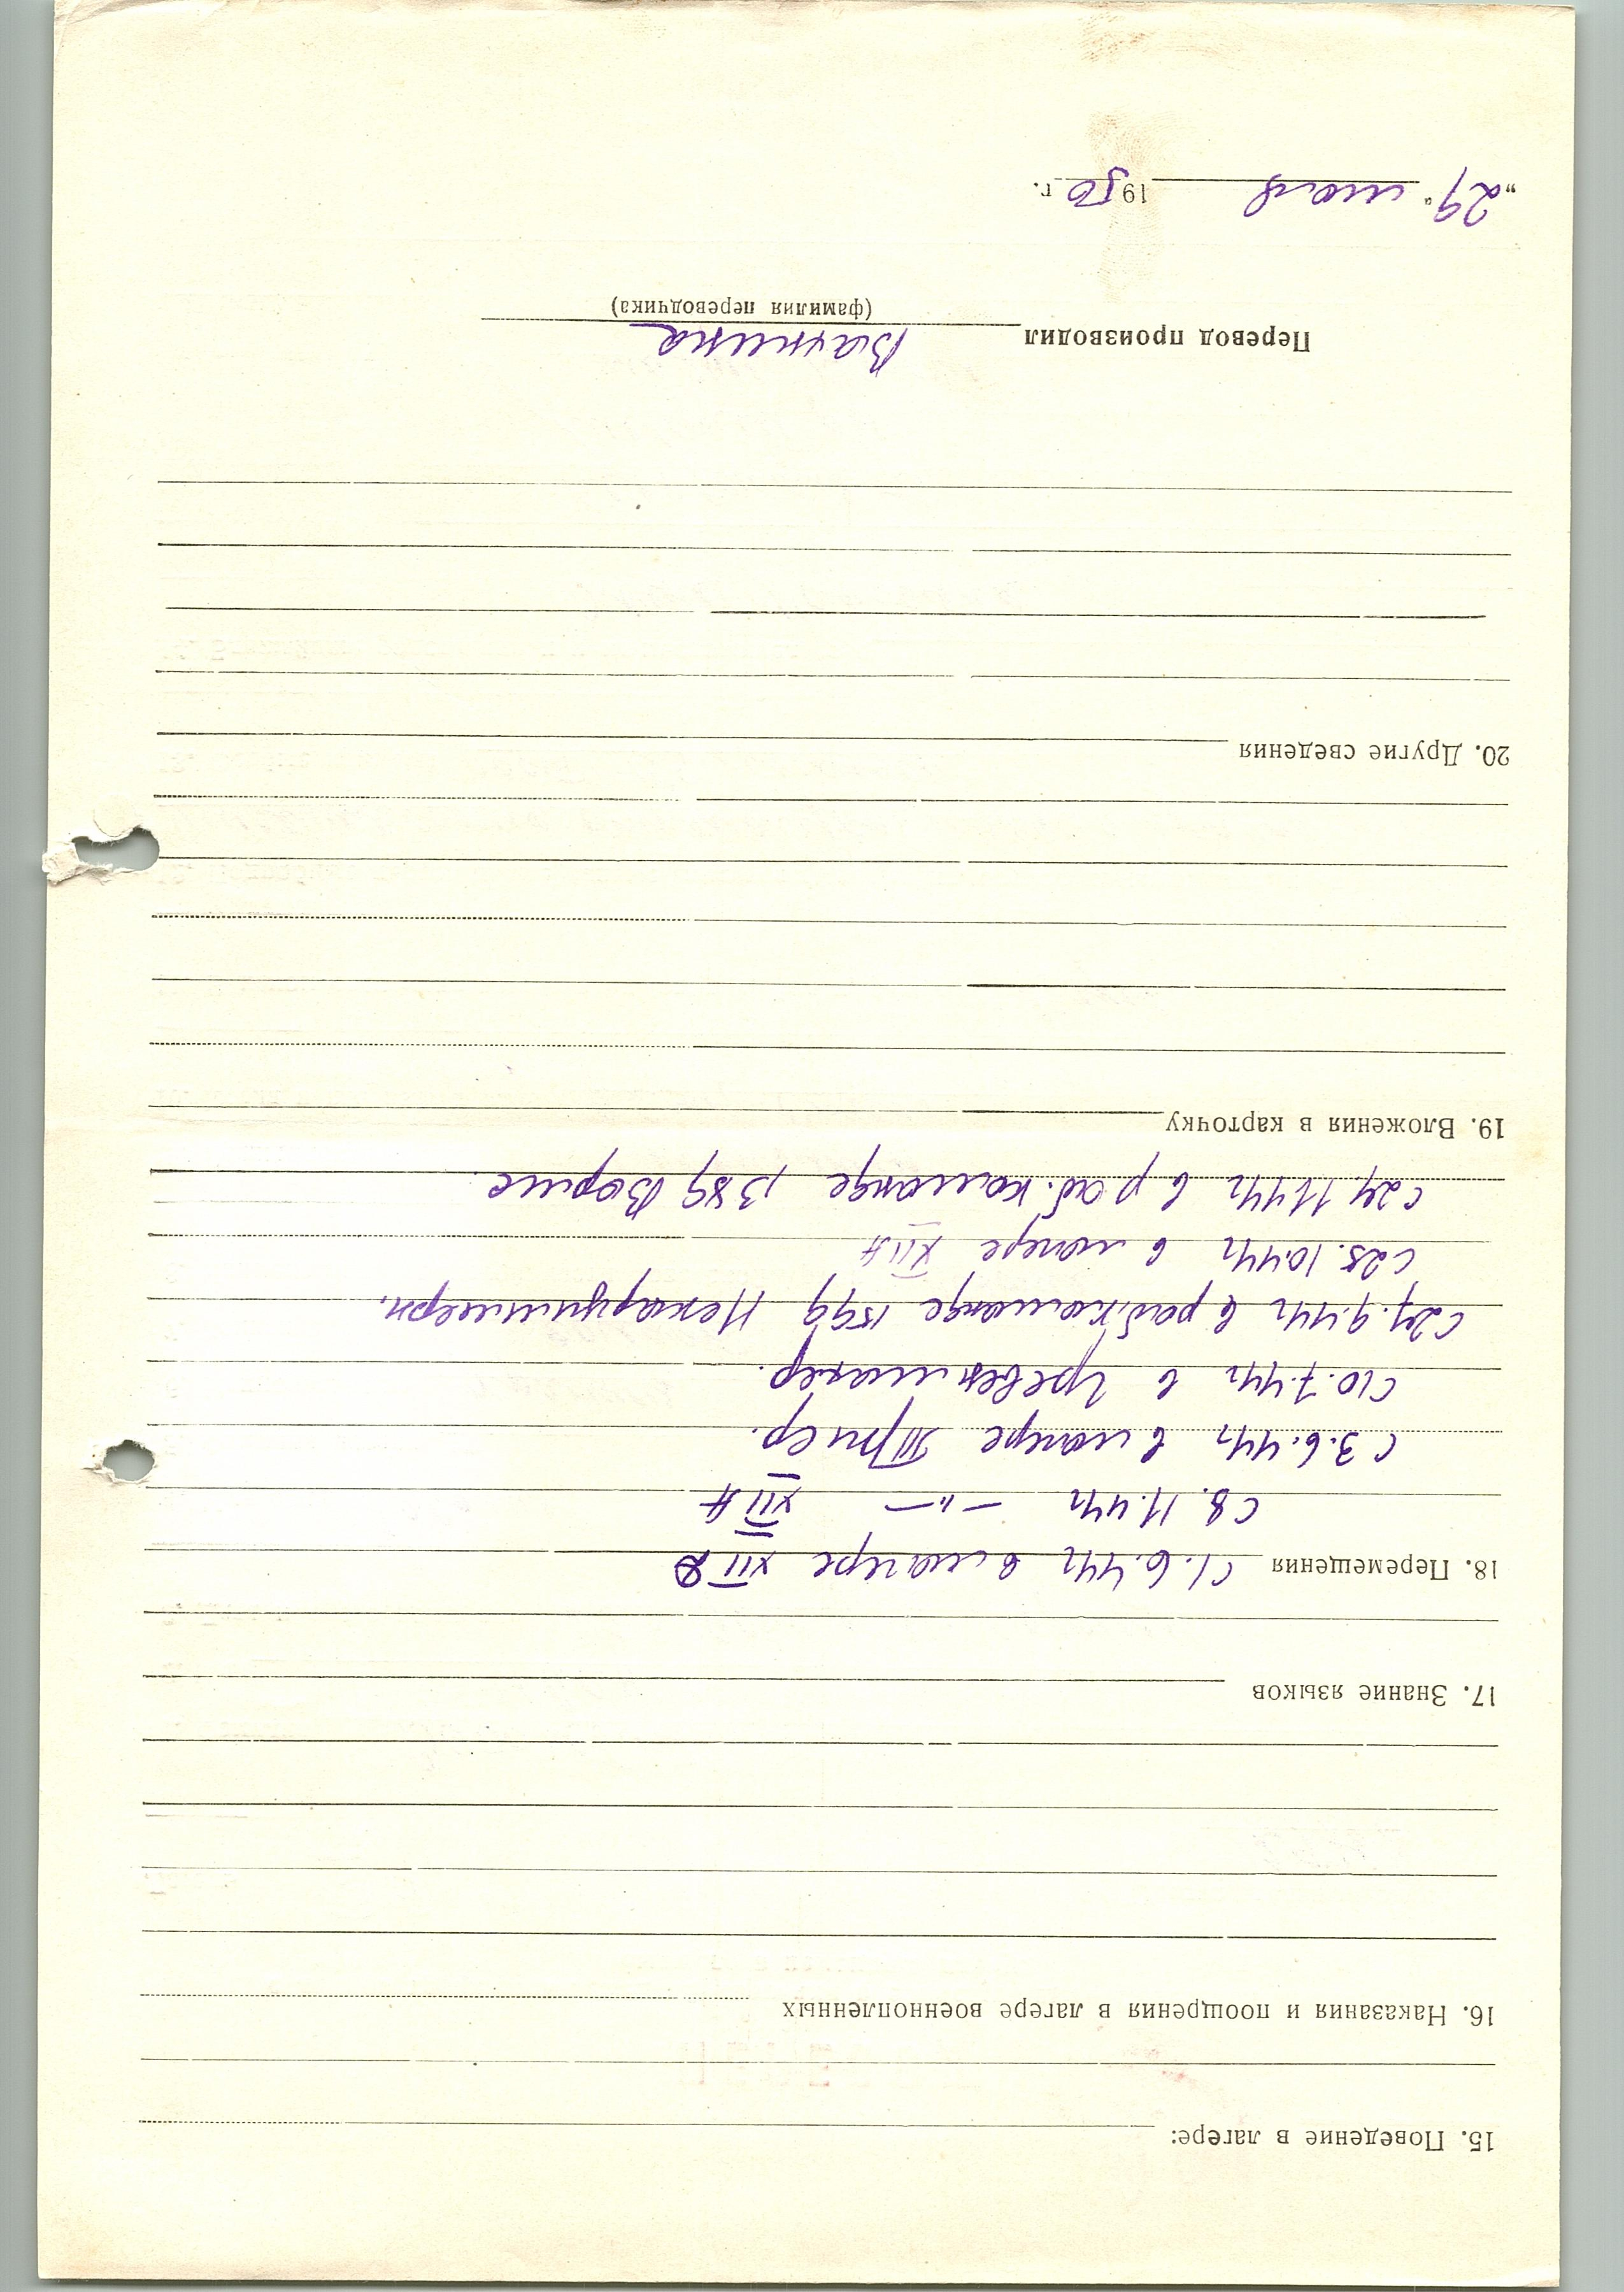 15. Поведение в лагере:
16. Наказания и поощрения в лагере военнопленных
17. Знание языков
18. Перемещения С 1.6.44г в лагере XII D
С 8.11.44г —"— XII А
С 3.6.44г в лагере Трир.
С 10.7.44г в Гревенмахер.
С 27.9.44г в раб. команде 1599
С 25.10.44г в лагере XII А
С 24.11.44г в раб. команде 1389 Вормс
19. Вложения в карточку
20. Другие сведения
Перевод производил
(фамилия переводчика)
„29“ 1950 г.